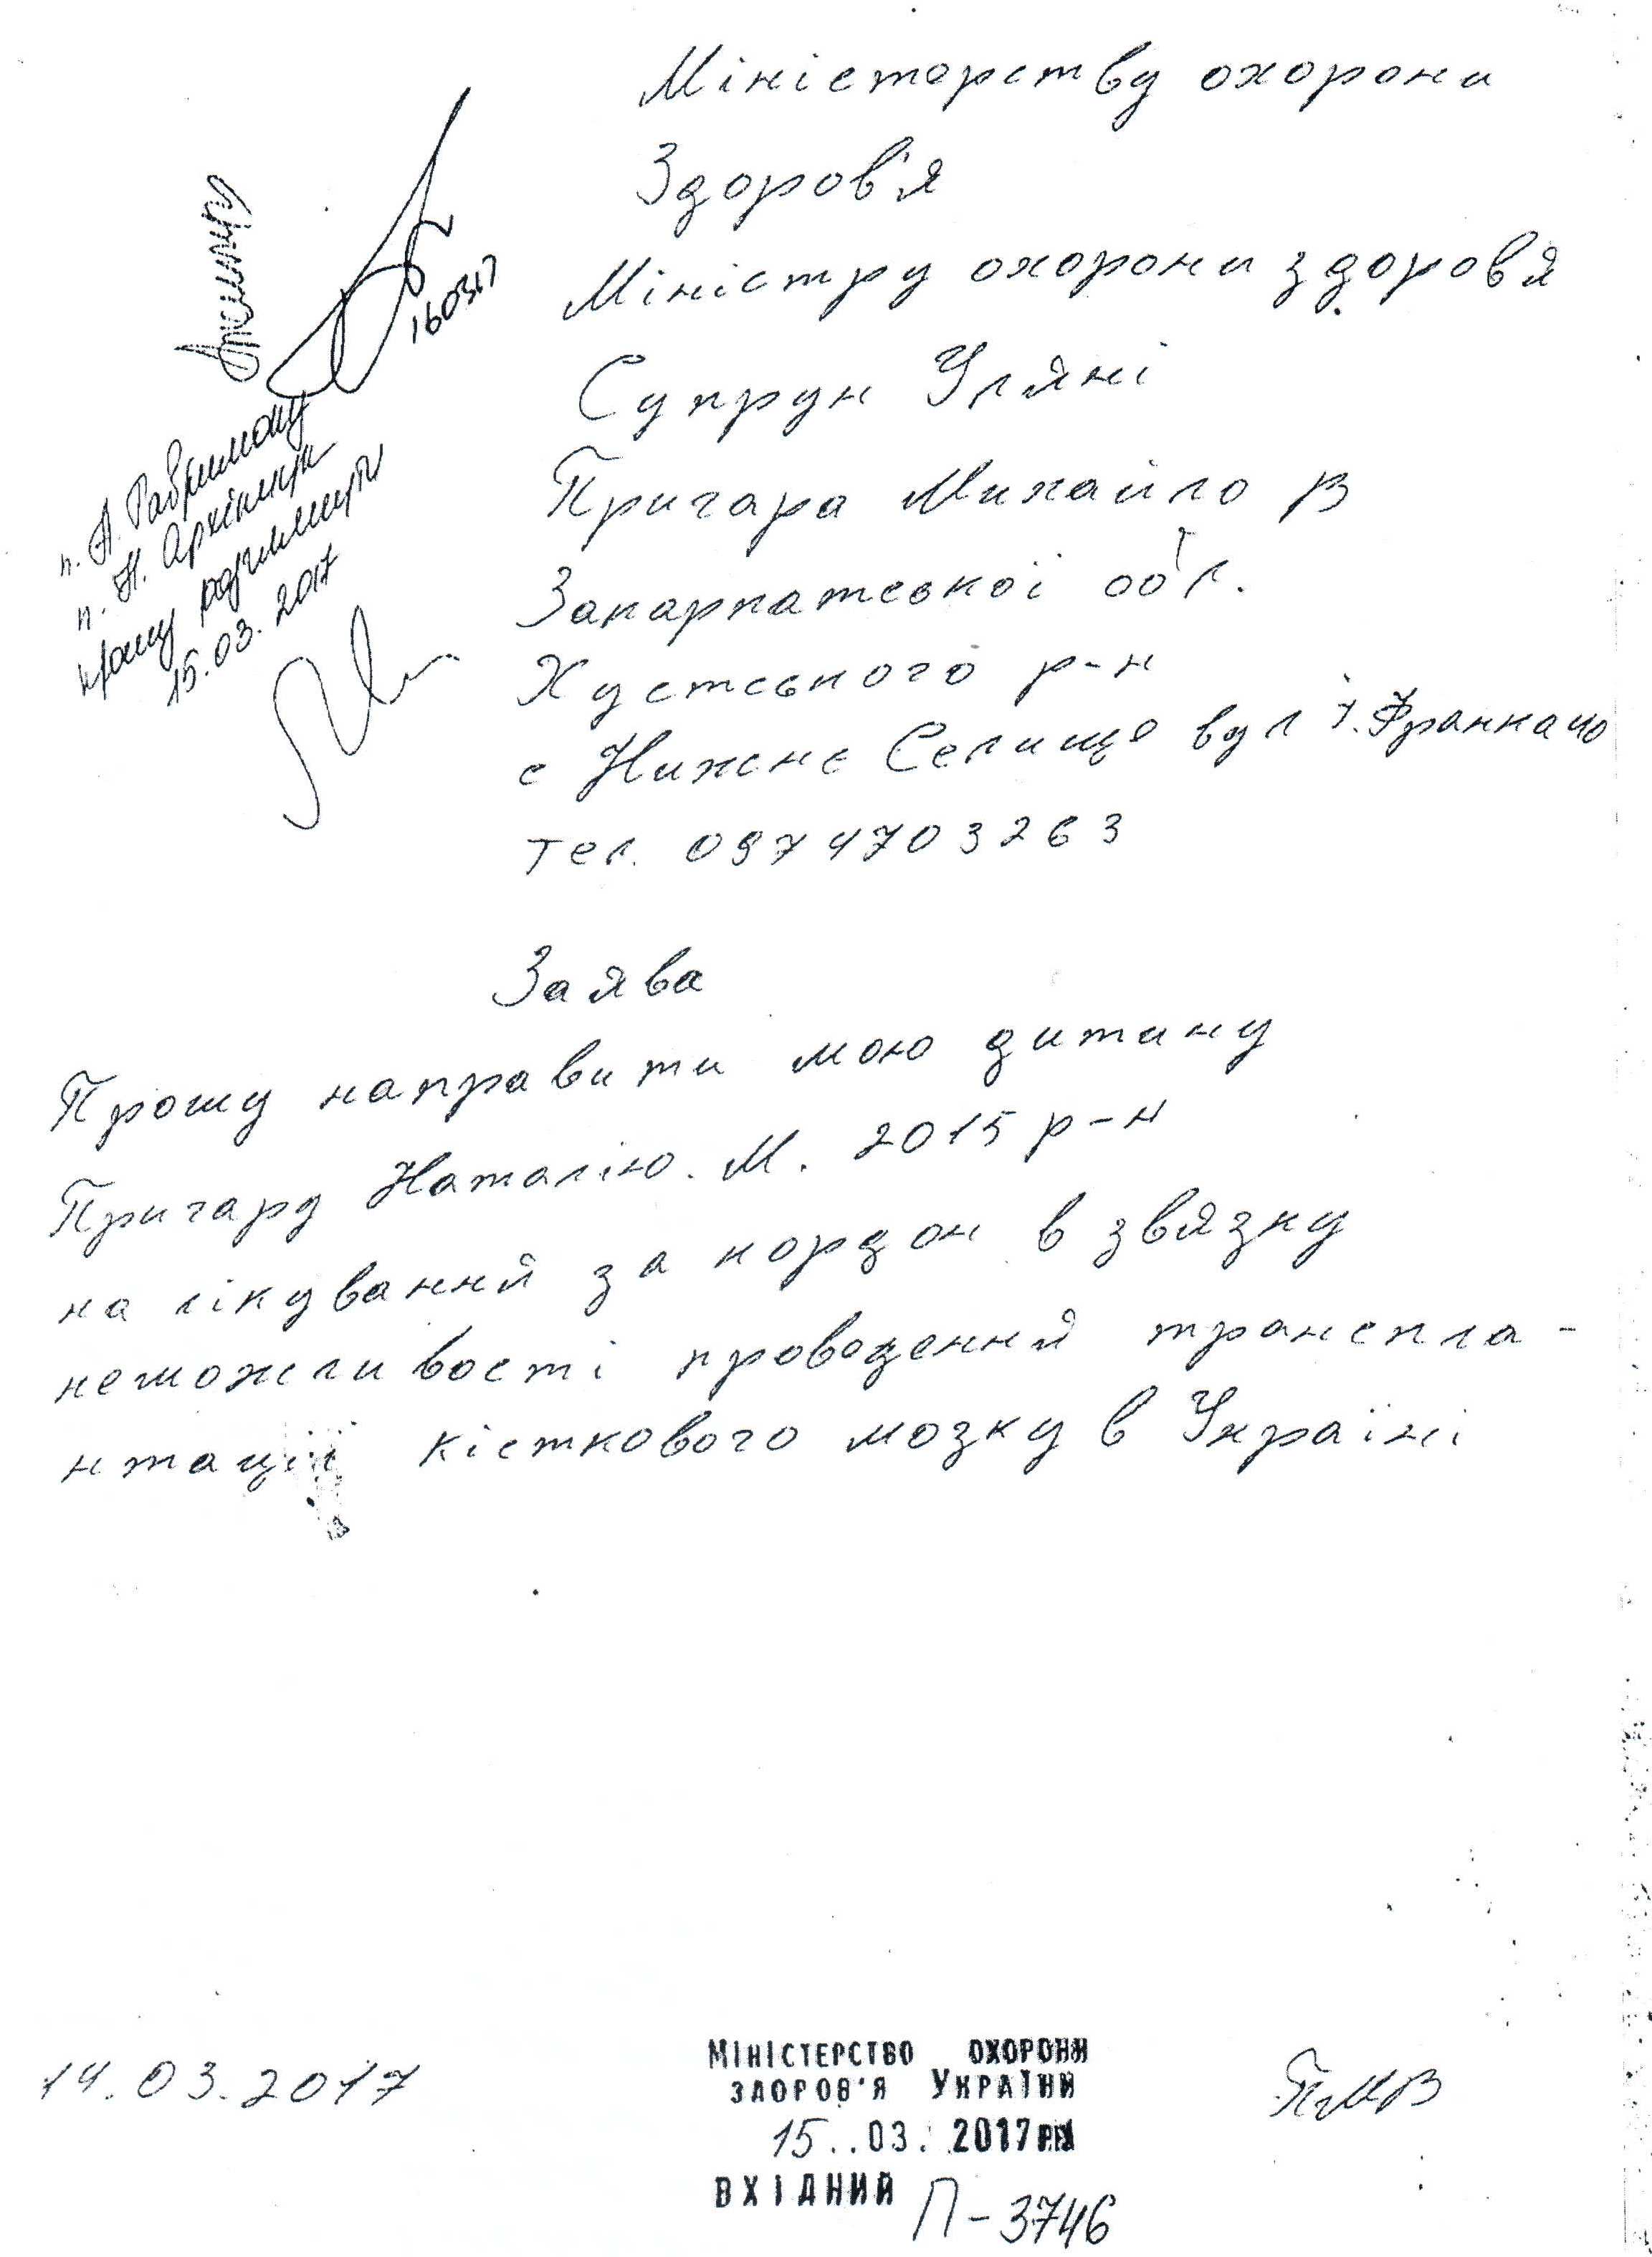 Міністерству охорони
Здоров'я
Міністру охорони здоров'я
Супрун Уляні
Пригара Михайло В
Закарпатської обл.
Хустського р-н
с Нижнє Селище вул І. Франка 40
тел. 0974703263
160317
п.
п. Н.
прошу розглянути
15.03.2017
Заява
Прошу направити мою дитину
Пригару Наталію. М. 2015 р-н
на лікування за кордон в звязку
неможливості проведення транспла-
нтації кісткового мозку в Україні
14.03.2017
ПМВ
МІНІСТЕРСТВО ОХОРОНИ
ЗДОРОВ'Я УКРАЇНИ
15..03. 2017
ВХІДНИЙ П-3746